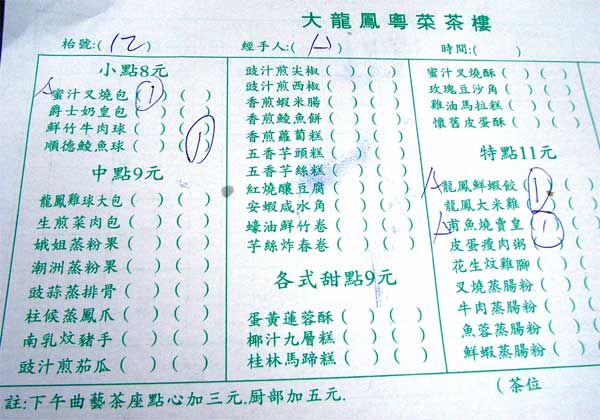 大龍鳳粵菜茶樓
枱號:(12) 經手人:(A) 時間:( )
小點8元
蜜汁叉燒包(1)( )
爵士奶皇包( )( )
鮮竹牛肉球( )( )
順德鯪魚球( )(1)
中點9元
龍鳳雞球大包( )( )
生煎菜肉包( )( )
娥姐蒸粉果( )( )
潮洲蒸粉果( )( )
豉蒜蒸排骨( )( )
柱候蒸鳳爪( )( )
南乳炆豬手( )( )
豉汁煎茄瓜( )( )
豉汁煎尖椒( )( )
豉汁煎西椒( )( )
香煎蝦米腸( )( )
香煎鯪魚餅( )( )
香煎蘿蔔糕( )( )
五香芋頭糕( )( )
五香芋絲糕( )( )
紅燒釀豆腐( )( )
安蝦咸水角( )( )
蠔油鮮竹卷( )( )
芋絲炸春卷( )( )
各式甜點9元
蛋黃蓮蓉酥( )( )
椰汁九層糕( )( )
桂林馬蹄糕( )( )
蜜汁叉燒酥( )( )
玫瑰豆沙角( )( )
雞油馬拉糕( )( )
懷舊皮蛋酥( )( )
特點11元
龍鳳鮮蝦餃(1)( )
龍鳳大米雞( )( )
甫魚燒賣皇(1)( )
皮蛋瘦肉粥( )( )
花生炆雞腳( )( )
叉燒蒸腸粉( )( )
牛肉蒸腸粉( )( )
魚蓉蒸腸粉( )( )
鮮蝦蒸腸粉( )( )
註:下午曲藝茶座點心加三元.厨部加五元. (茶位